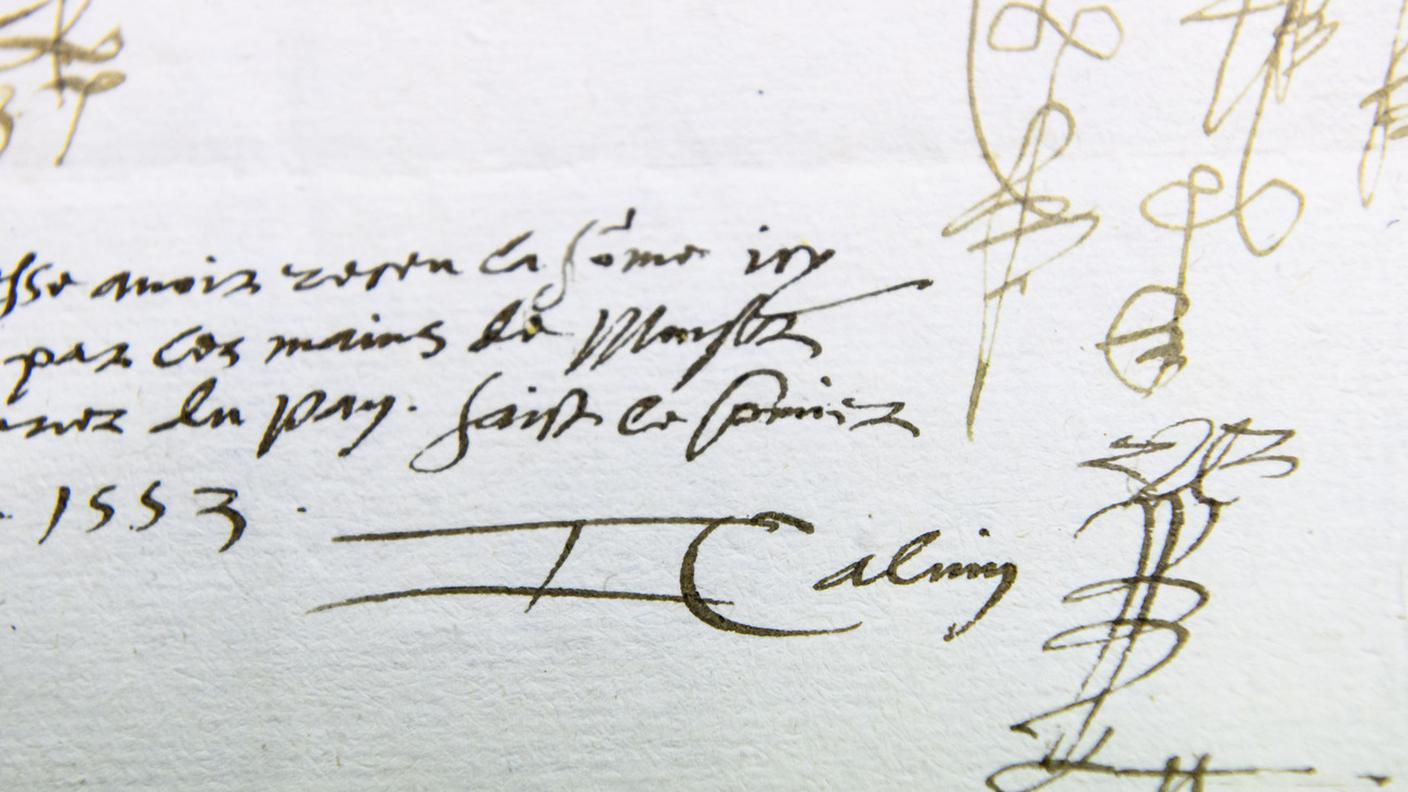 sse avoir receu la sôme icy
par les mains de Monsr
du pay. faict ce premier
1553.
J Calvin